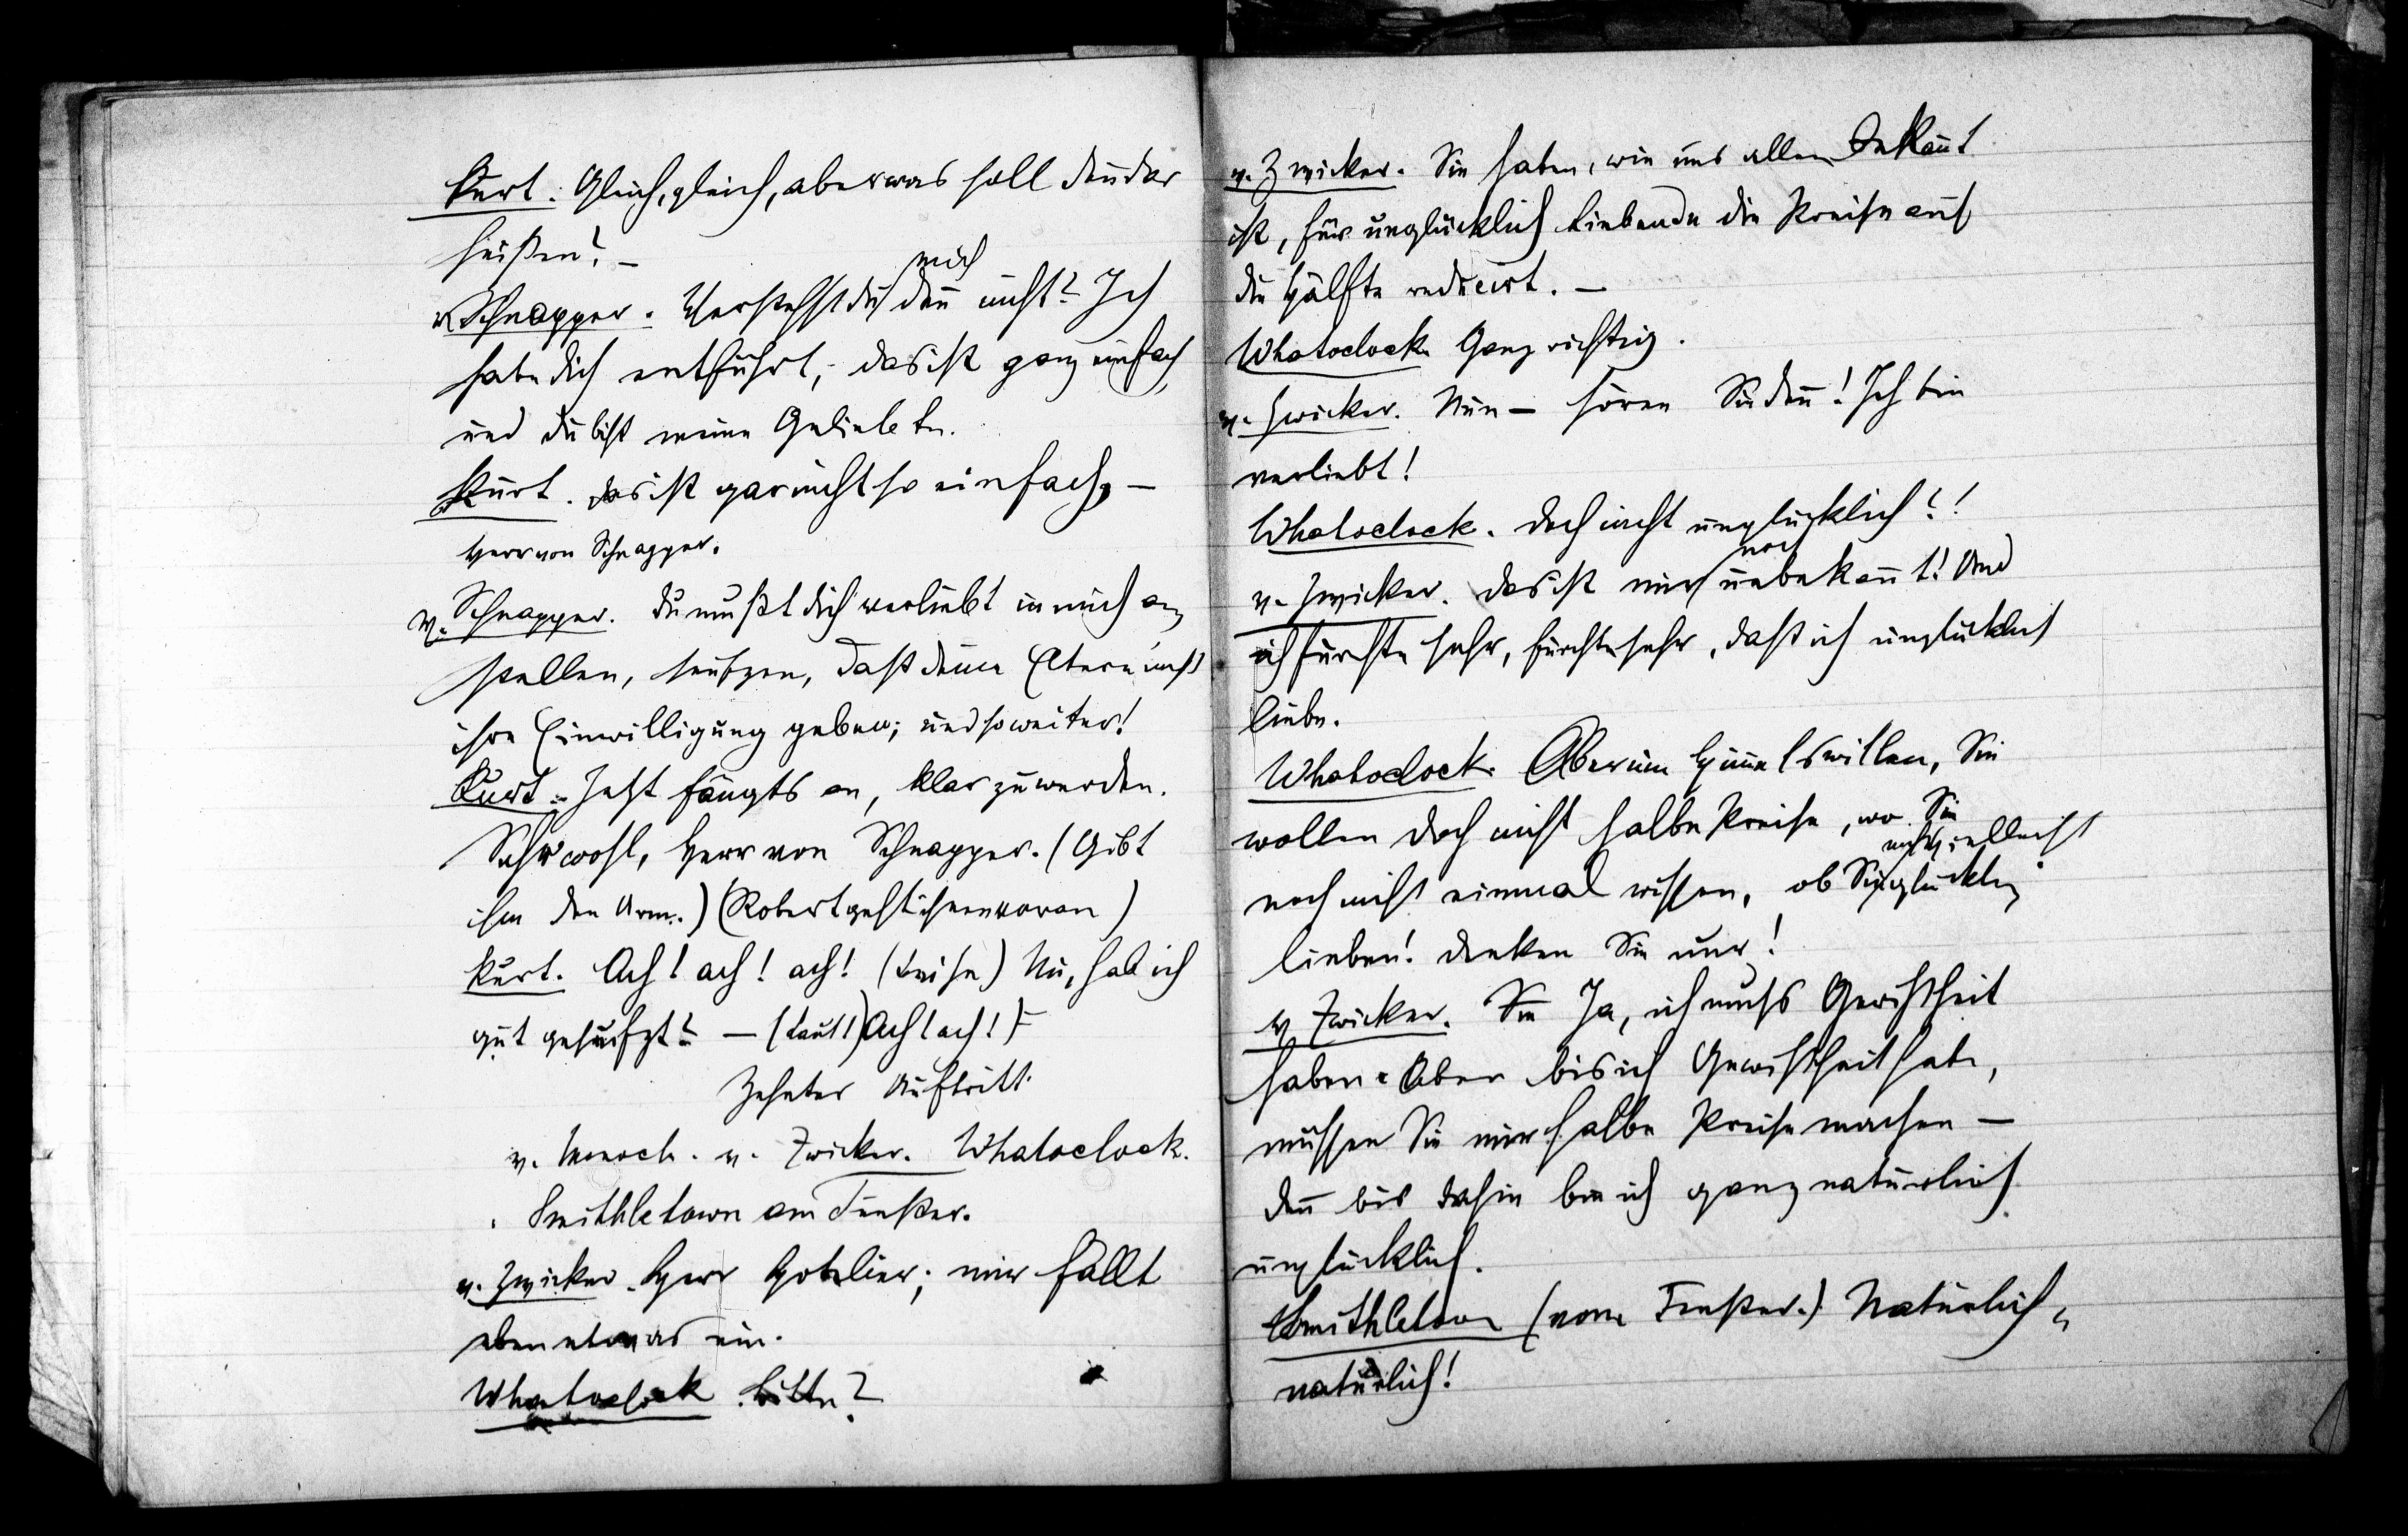 Kurt. Gleich, gleich, aber was soll deñ das
heißen? –
v Schnapper. Verstehst du mich deñ nicht? Ich
habe dich entführt, das ist ganz einfach,
und du bist meine Geliebte.
Kurt. Das ist gar nicht so einfach, –
Herr von Schnapper.
v. Schnapper. Du mußt dich verliebt in mich an
stellen, seufzen, daß deine Eltern nicht
ihre Einwilligung geben; und so weiter!
Kurt. Jetzt fängts an, klar zu werden.
Sehr wohl, Herr von Schnapper. (Gibt
ihm den Arm.) (Robert geht ihnen voran)
Kurt. Ach! ach! ach! (Leise) Nu, hab ich
gut geseufzt? – (Laut!) Ach! ach! –
Zehnter Auftritt.
v. Zwicker. Whatoclock.
Smithletown am Fenster.
v. Zwicker. Herr Hotelier; mir fällt
eben etwas ein.
Whatoclock. Bitte?
v. Zwicker. Sie haben, wie uns allen bekañt
ist, für unglücklich Liebende die Preise auf
die Hälfte reducirt. –
Whatoclock Ganz richtig.
v. Zwicker. Nun – hören Sie deñ! Ich bin
verliebt!
Whatoclock. Doch nicht unglücklich?!
v. Zwicker. Das ist mir noch unbekañt! Und
ich fürchte sehr, fürchte sehr, daß ich unglücklich
liebe.
Whatoclock. Aber um Him̃elswillen, Sie
wollen doch nicht halbe Preise, wo Sie
noch nicht einmal wissen, ob Sie nicht vielleicht glücklich
lieben! Denken Sie nur!
v Zwicker. Sie Ja, ich muss Gewißheit
haben. Aber bis ich Gewißheit habe,
müssen Sie mir halbe Preise machen –
deñ bis dahin bin ich ganz natürlich
unglücklich.
Smithletown (vom Fenster.) Natürlich,
natürlich!